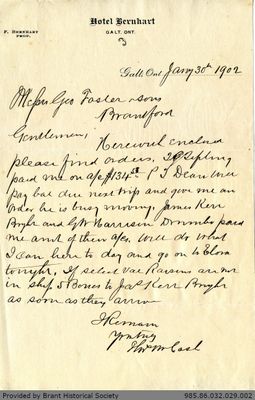 Hotel Bernhart
F. BERNHART
PROP.
GALT, ONT.
3
Galt, Ont Jany 30th 1902
Messrs Geo Foster & Sons
Brantford
Gentlemen,
Herewith enclosed
please find orders,
paid me on a/c $134 P J Dean will
pay bal due next trip and give me an
order he is busy moving, James Kerr
and G W Harrison Drumbo paid
me amt of their a/cs, Will do what
I can here to day and go on to Elora
tonight, If select Val Raisins are
in ship 5 Boxes to Jas Kerr
as soon as they arrive
I Remain
Yours truly
Provided by Brant Historical Society
985.86.032.029.002